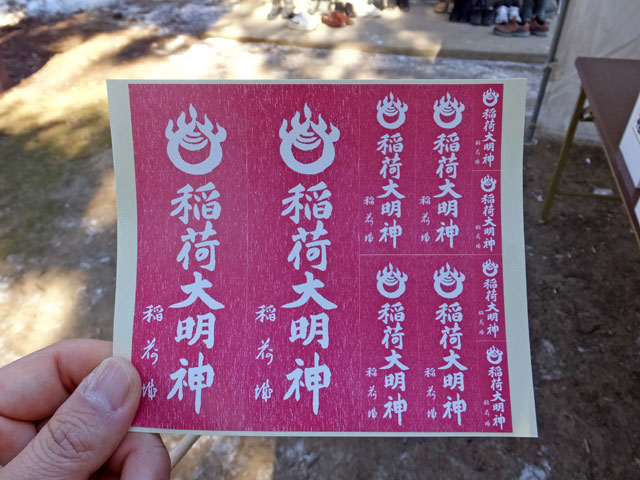 稲荷大明神
稲荷
稲荷大明神
稲荷
稲荷大明神
稲荷
稲荷大明神
稲荷
稲荷大明神
稲荷
稲荷大明神
稲荷
稲荷大明神
稲荷
稲荷大明神
稲荷
稲荷大明神
稲荷
稲荷大明神
稲荷